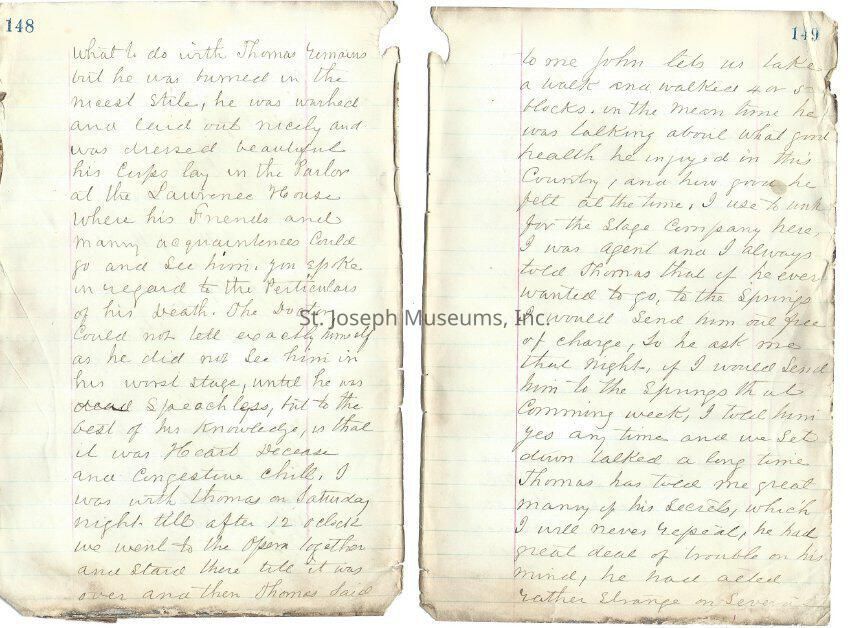 148
what to do with Thomas remains
but he was burried in the
nicest Stile, he was washed
and laid out nicely and
was dressed beautiful
his Corps lay in the Parlor
at the Lawrence House
where his Friends and
manny acquaintences Could
go and See him. you spoke
in regard to the Perticulars
of his Death. The Doctor
Could not tell exactly himself
as he did not See him in
his worst Stage, until he was
dead Speachless, but to the
best of his Knowledge, is that
it was Heart Decease
and Congestive Chill, I
was with Thomas on Saturday
night till after 12 oclock
we went to the Opera together
and Staid there till it was
over and then Thomas Said
149
to me John lets us take
a walk and walked 4 or 5
blocks. in the mean time he
was talking about what good
health he injoyed in this
Country, and how good he
felt at the time, I use to work
for the Stage Company here,
I was agent and I always
told Thomas that if he ever
wanted to go, to the Springs
I would Send him out free
of charge, So he ask me
that night, if I would Send
him to the Springs that
Comming week, I told him
yes any time and we Set
down talked a long time
Thomas has told me great
manny of his Secrets, which
I will never repeal, he had
great deal of trouble on his
mind, he had acted
rather Strange on Several
St. Joseph Museums, Inc.